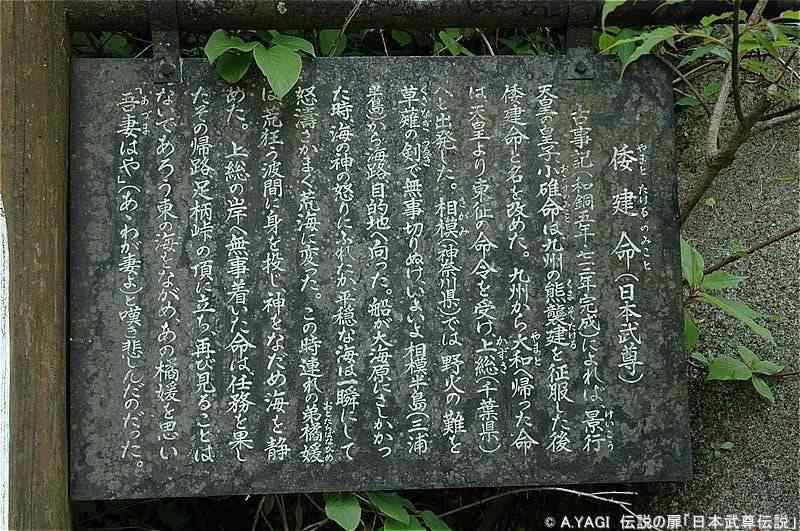 倭建命(日本武尊)
古事記(和銅五年・七一二年完成)によれば、景行
天皇の皇子小碓命は九州の熊襲建を征服した後
倭建命と名を改めた。九州から大和へ帰った命
は、天皇より東征の命令を受け、上総(千葉県)
へと出発した。相模(神奈川県)では、野火の難を
草薙の剣で無事切りぬけ、いよいよ相模半島(三浦
半島)から海路目的地へ向った。船が大海原にさしかかっ
た時、海の神の怒りにふれたか、平穏な海は一瞬にして
怒濤さかまく荒海に変った。この時連れの弟橘媛
は荒狂う波間に身を投じ、神をなだめ海を静
めた。上総の岸へ無事着いた命は任務を果し
たその帰路、足柄峠の頂に立ち、再び見ることは
ないであろう東の海をながめ、あの橘媛を思い
「吾妻はや」(あゝわが妻よ)と嘆き悲しんだのだった。
© A.YAGI 伝説の扉「日本武尊伝説」